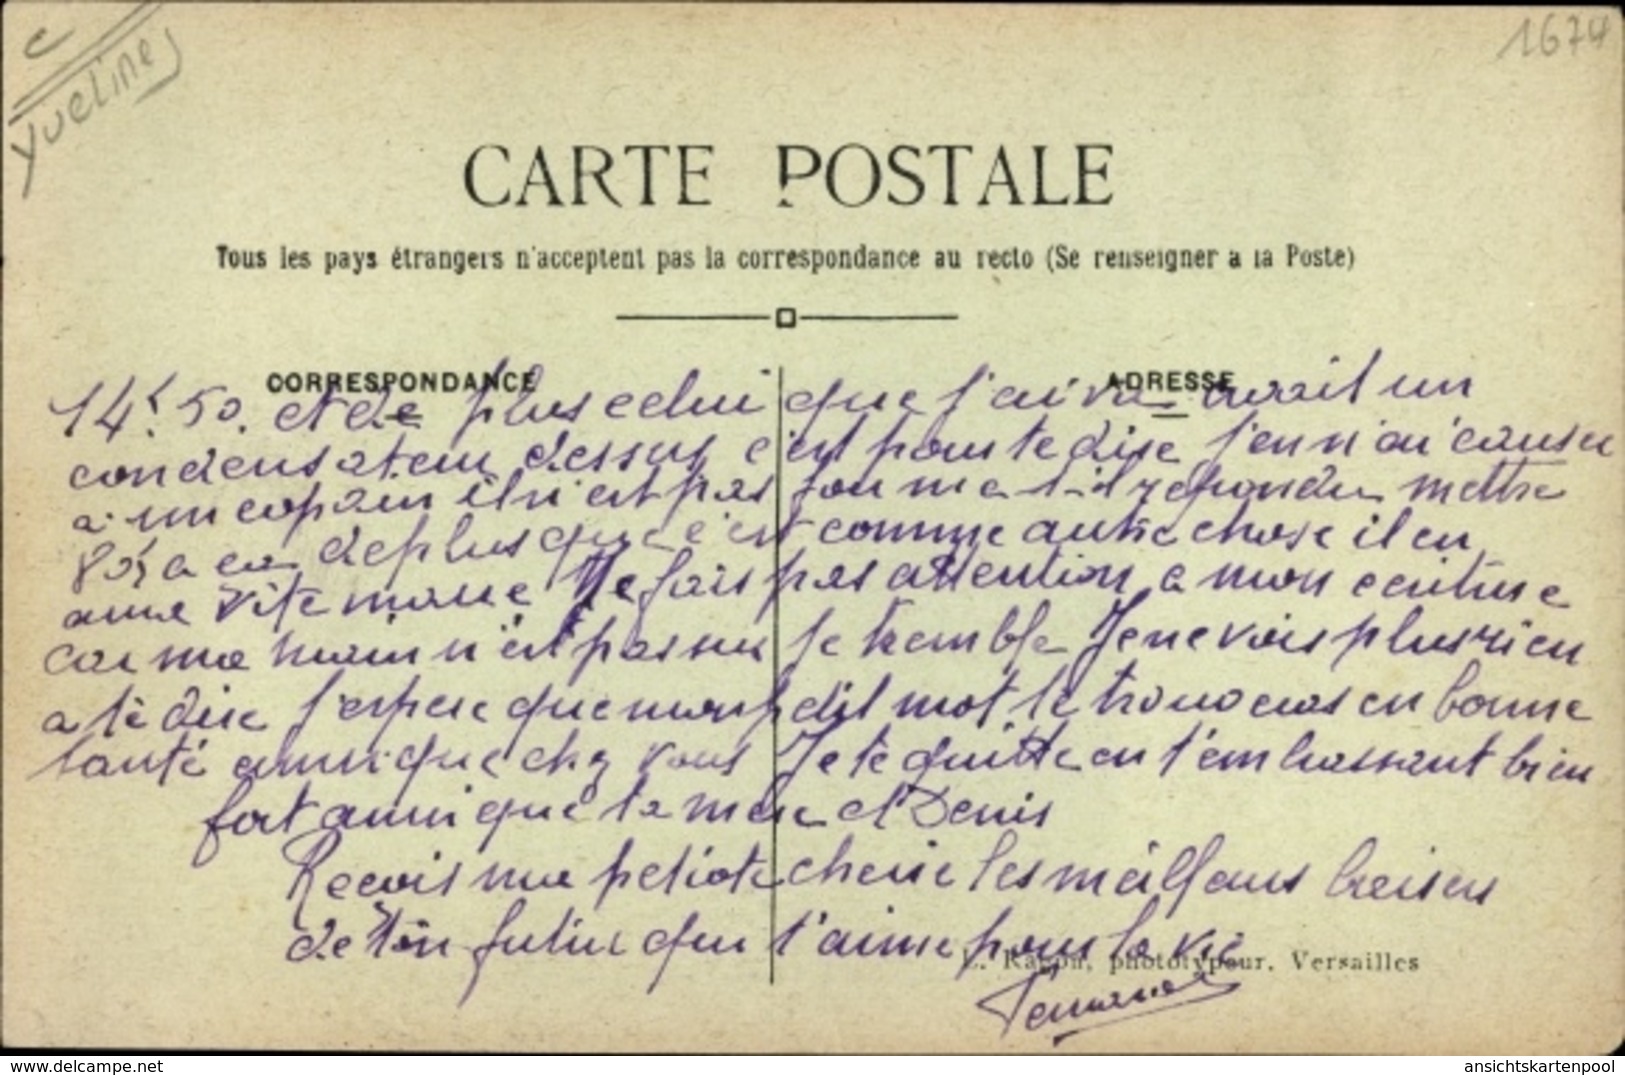 Yveline
1674
CARTE POSTALE
Tous les pays étrangers n'acceptent pas la correspondance au recto (Se renseigner a la Poste)
CORRESPONDANCE
ADRESSE
14f 50. et de plus celui que j'ai vu avait un
condensateur dessus c'est pour te dire j'en n'ai causer
a un copain il n'est pas fou me t-il repondu mettre
de plus que c'est comme autre chose il en
aura vite marre Ne fais pas attention a mon ecriture
car ma main n'est pas sur je tremble Je ne vois plus rien
a te dire j'espere que mon petit mot te trouveras en bonne
santé ainsi que chez vous Je te quitte en t'embrassant bien
fort ainsi que ta mere et Denis
Recois ma petiote cherie les meilleurs baisers
de ton futur qui t'aime pour la vie
L. Ragon, phototypeur, Versailles
ansichtskartenpool